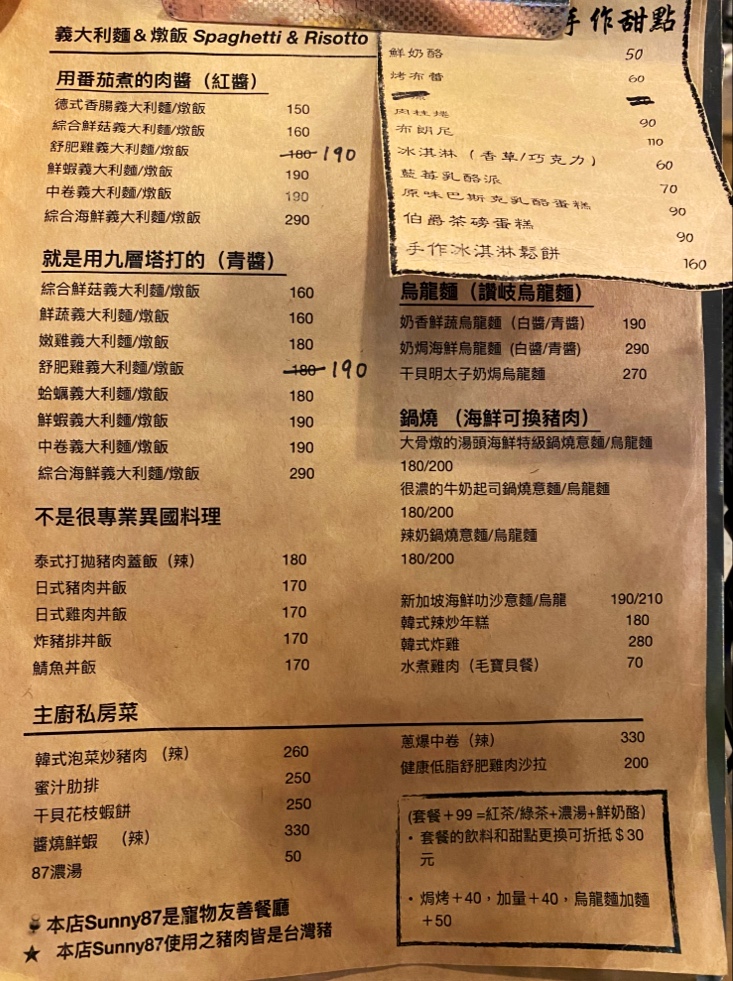 義大利麵＆燉飯 Spaghetti & Risotto
用番茄煮的肉醬（紅醬）
德式香腸義大利麵/燉飯 150
綜合鮮菇義大利麵/燉飯 160
舒肥雞義大利麵/燉飯 180 190
鮮蝦義大利麵/燉飯 190
中卷義大利麵/燉飯 190
綜合海鮮義大利麵/燉飯 290
就是用九層塔打的（青醬）
綜合鮮菇義大利麵/燉飯 160
鮮蔬義大利麵/燉飯 160
嫩雞義大利麵/燉飯 180
舒肥雞義大利麵/燉飯 180 190
蛤蠣義大利麵/燉飯 180
鮮蝦義大利麵/燉飯 190
中卷義大利麵/燉飯 190
綜合海鮮義大利麵/燉飯 290
不是很專業異國料理
泰式打拋豬肉蓋飯（辣） 180
日式豬肉丼飯 170
日式雞肉丼飯 170
炸豬排丼飯 170
鯖魚丼飯 170
手作甜點
鮮奶酪 50
烤布蕾 60
肉桂捲 90
布朗尼 110
冰淇淋（香草/巧克力） 60
藍莓乳酪派 70
原味巴斯克乳酪蛋糕 90
伯爵茶磅蛋糕 90
手作冰淇淋鬆餅 160
烏龍麵（讚岐烏龍麵）
奶香鮮蔬烏龍麵（白醬/青醬） 190
奶焗海鮮烏龍麵（白醬/青醬） 290
干貝明太子奶焗烏龍麵 270
鍋燒 （海鮮可換豬肉）
大骨燉的湯頭海鮮特級鍋燒意麵/烏龍麵
180/200
很濃的牛奶起司鍋燒意麵/烏龍麵
180/200
辣奶鍋燒意麵/烏龍麵
180/200
新加坡海鮮叻沙意麵/烏龍 190/210
韓式辣炒年糕 180
韓式炸雞 280
水煮雞肉（毛寶貝餐） 70
主廚私房菜
韓式泡菜炒豬肉 （辣） 260
蜜汁肋排 250
干貝花枝蝦餅 250
醬燒鮮蝦 （辣） 330
87濃湯 50
蔥爆中卷（辣） 330
健康低脂舒肥雞肉沙拉 200
(套餐＋99 =紅茶/綠茶+濃湯+鮮奶酪)
・套餐的飲料和甜點更換可折抵＄30
元
・焗烤＋40，加量＋40，烏龍麵加麵
＋50
本店Sunny87是寵物友善餐廳
★ 本店Sunny87使用之豬肉皆是台灣豬